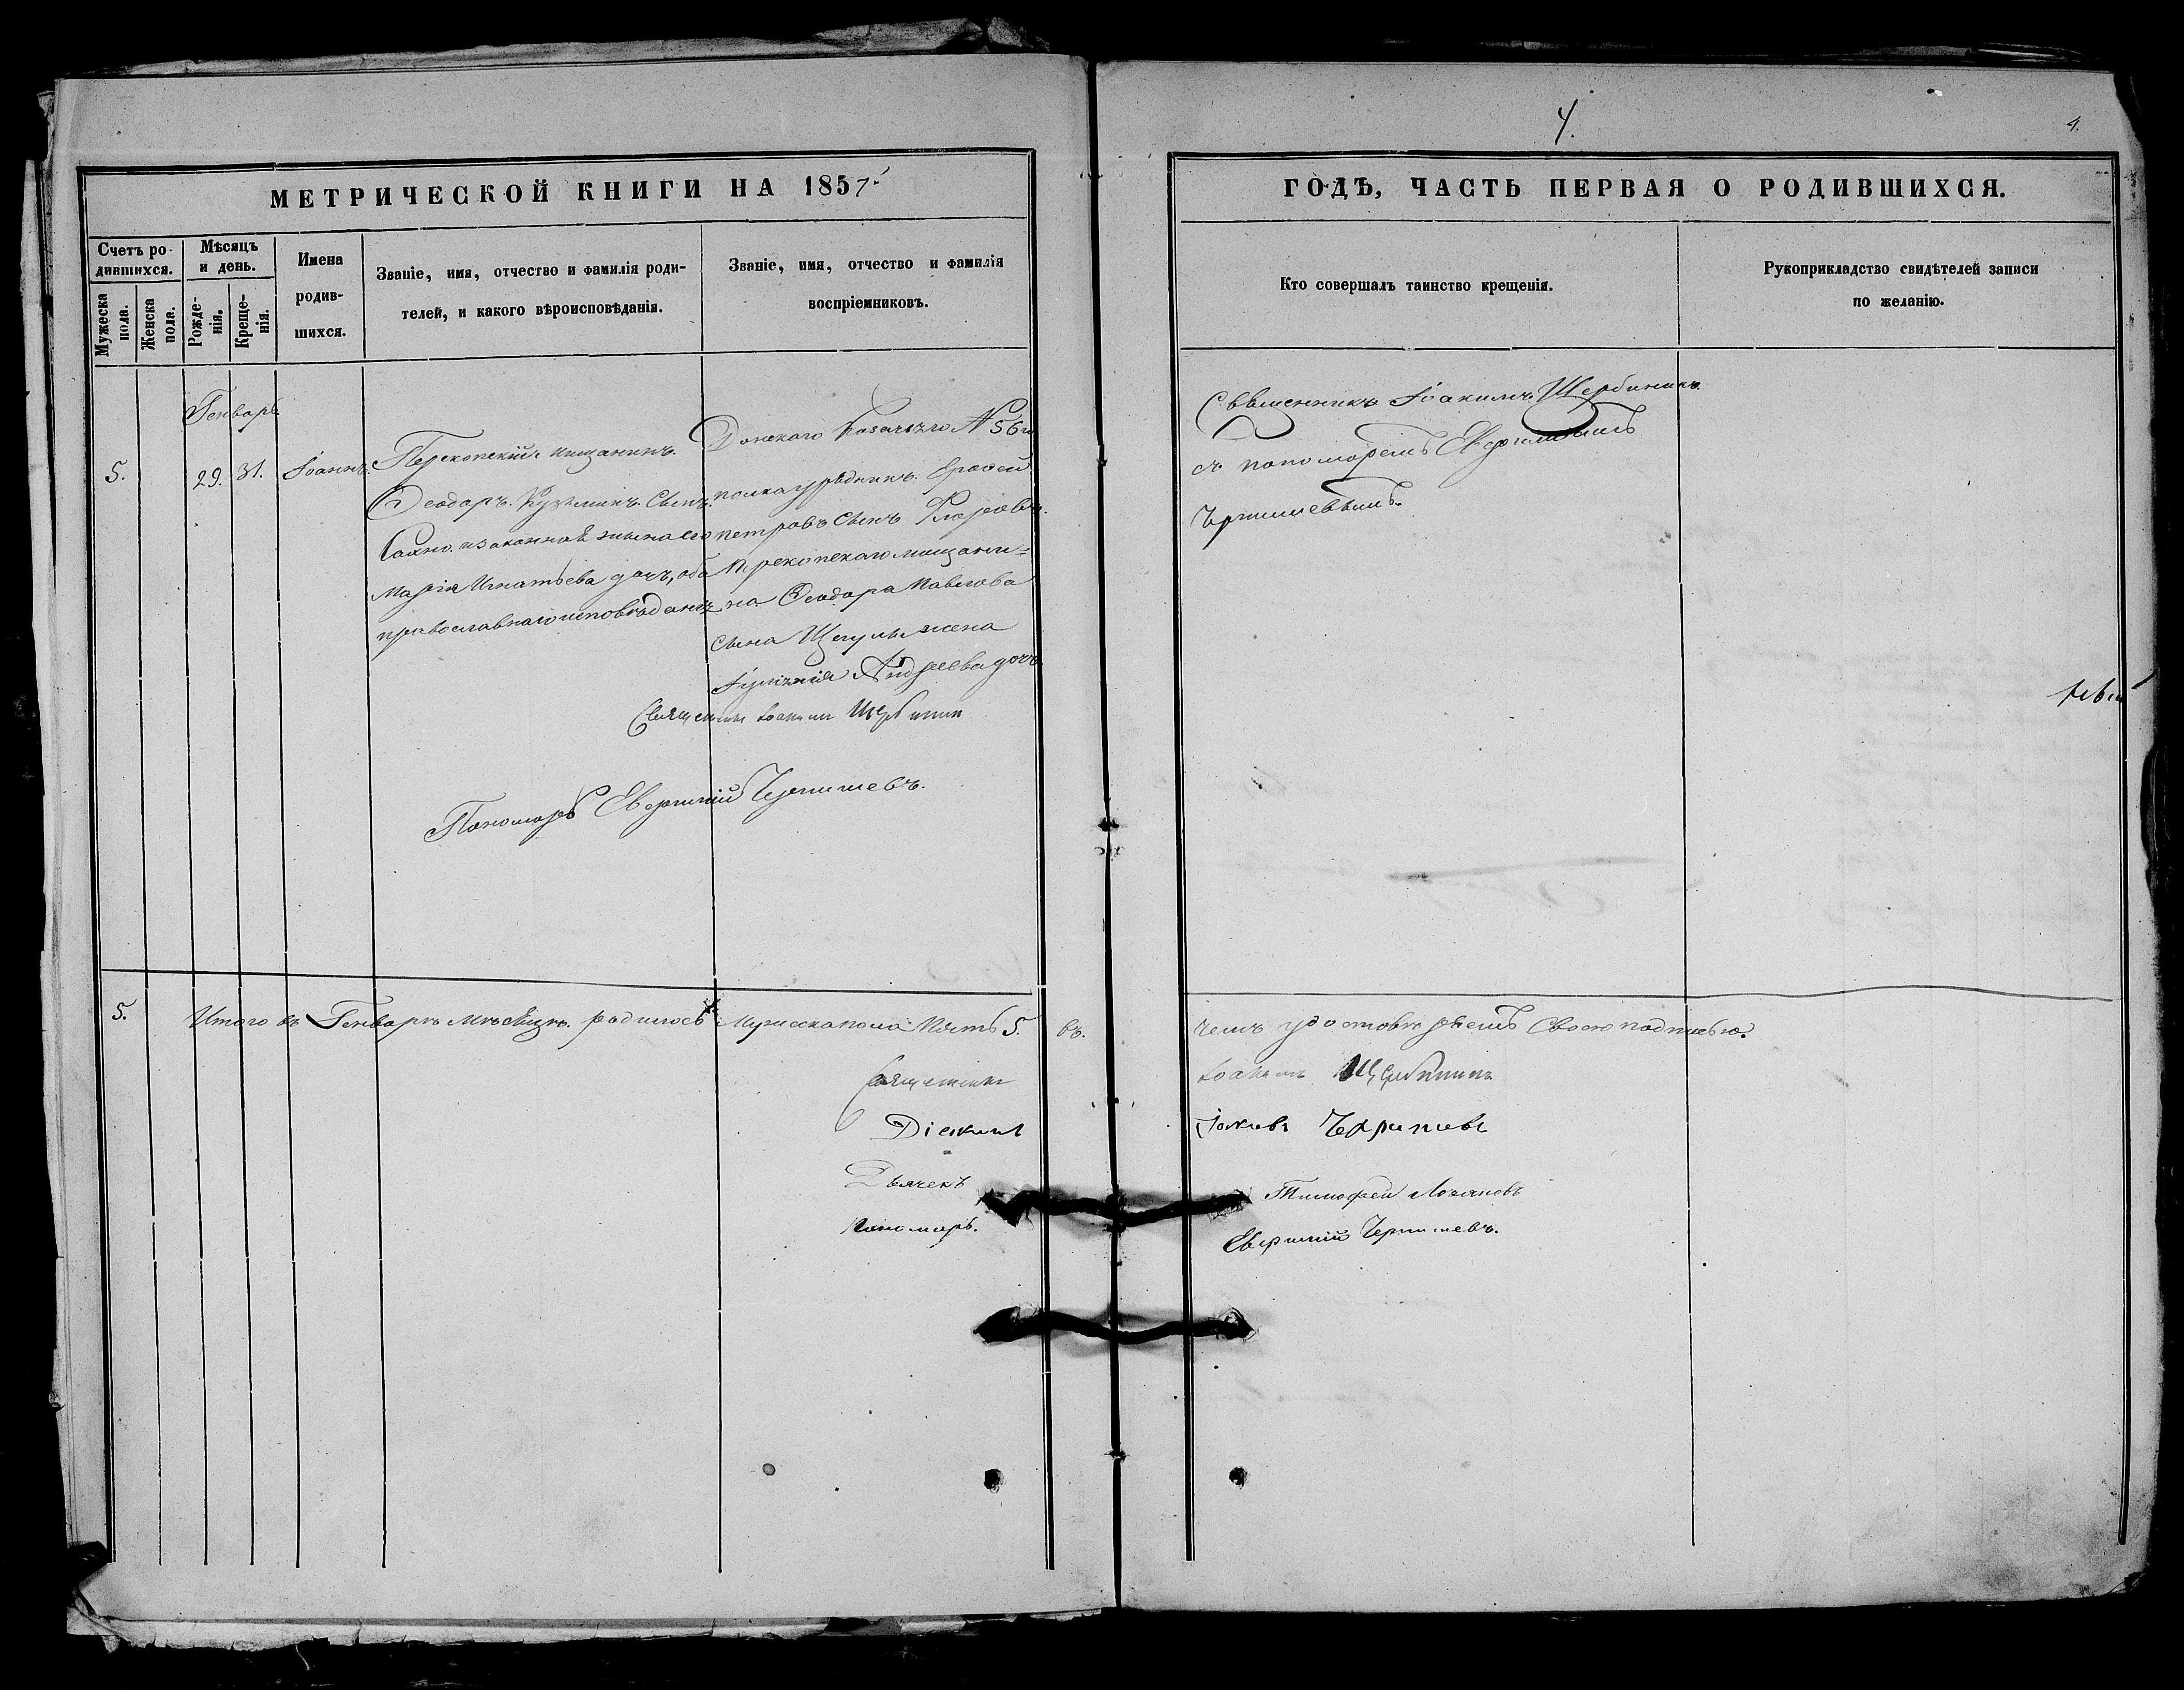 4.
4.
МЕТРИЧЕСКОЙ КНИГИ НА 1857
ГОДЪ, ЧАСТЬ ПЕРВАЯ О РОДИВШИХСЯ.
Счетъ ро-
дившихся.
Мужеска
пола.
Женска
пола.
Мѣсяцъ
и день.
Рожде-
нія.
Креще-
нія.
Имена
родив-
шихся.
Званіе, имя, отчество и фамилія роди-
телей, и какого вѣроисповѣданія.
Званіе, имя, отчество и фамилія
воспріемниковъ.
Кто совершалъ таинство крещенія.
Рукоприкладство свидѣтелей записи
по желанію.
Генваръ
5.
29.
31.
Іоаннъ.
Перекопскій мищанинъ.
Ѳеодоръ. Кузьминъ. Сынъ.
жына его
Марія Игнатьева дочъ, оба
православнаго исповѣданія
Донскаго Казачьяго N 56го
полка урядникъ. Ерофей
петровъ сынъ
Прекопскаго мищани=
на Ѳеодора Павлова
сына жена
Андреева дочъ
Священникъ Іоакимъ Щербинин
Пономарь Евфимій Чернишевъ.
Свѣщенникъ Іоакимъ Щербининъ.
съ пономоремъ Евфиміемъ
Чернишевымъ.
5.
Итого въ Генваре месяце. родилось Мужска пола Пять 5. въ.
чемъ удостовѣряемъ Своею подписью.
Священникъ
Іоакимъ Щербининъ
Діаконъ
Іаковъ Чернишевъ
Дьячекъ
Тимофей
Пономарь.
Евфимій Чернишевъ.